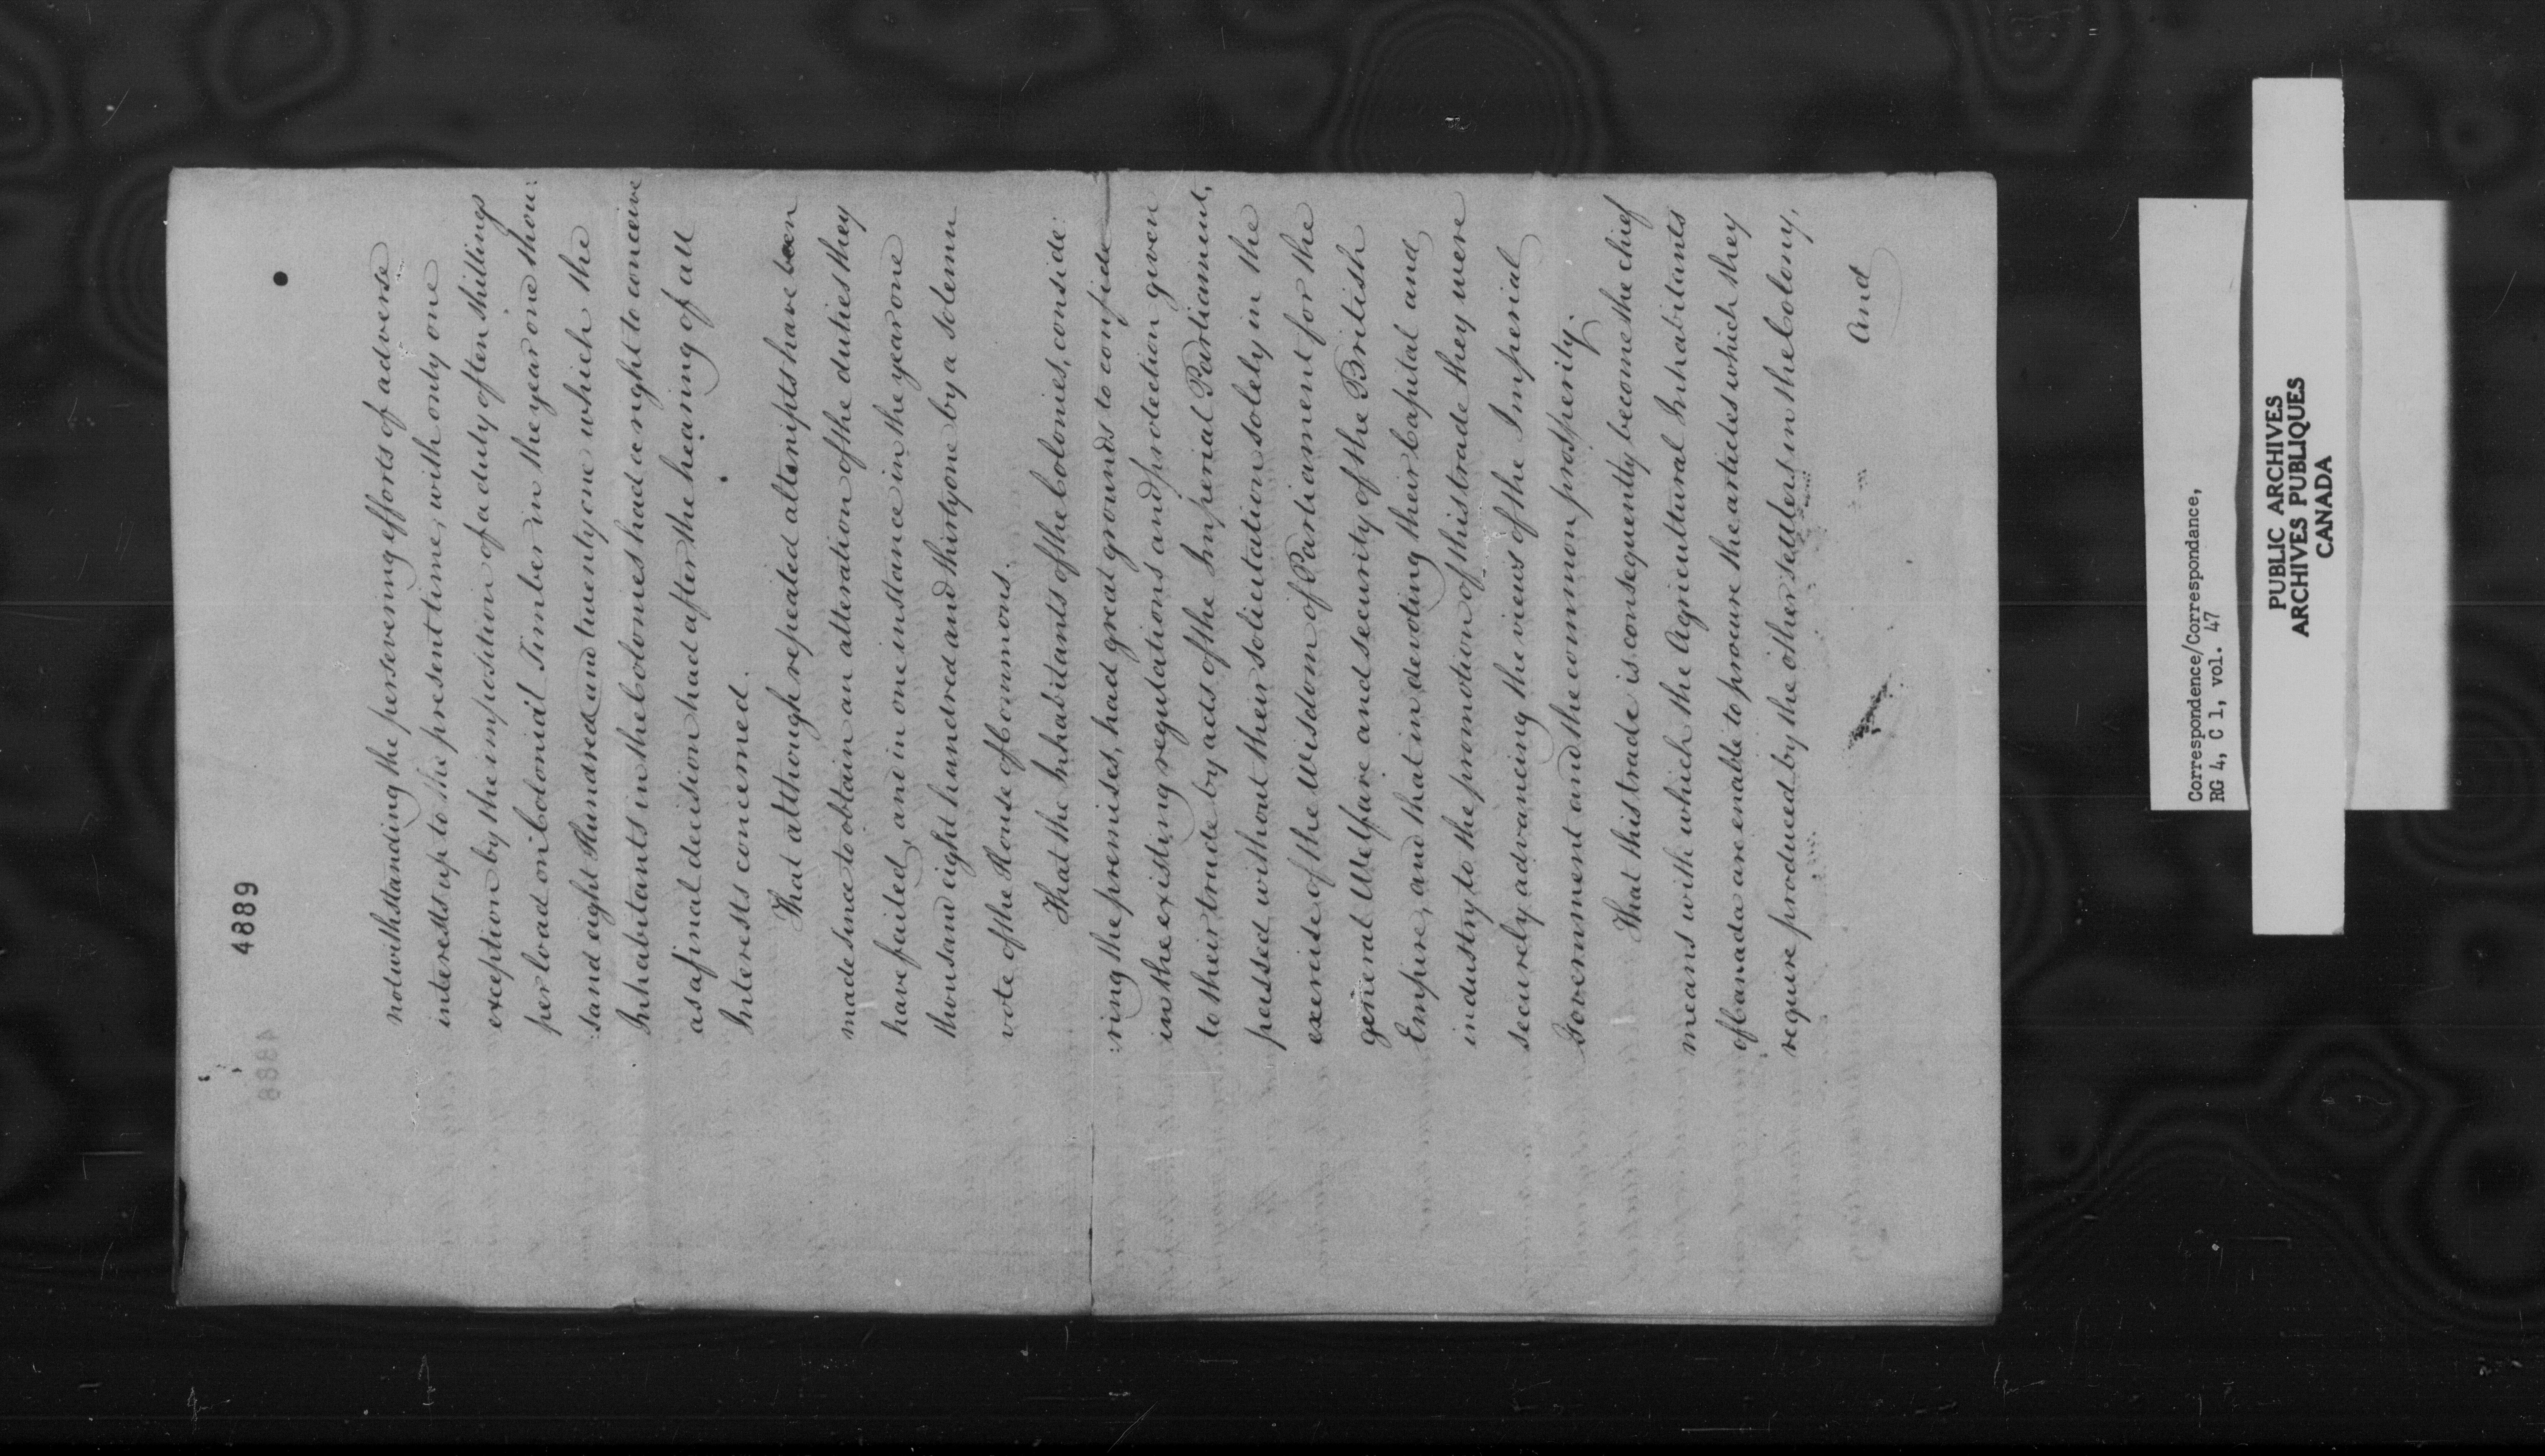 4889
notwithstanding the persevering efforts of adverse
interests up to the present time, with only one
exception by the imposition of a duty of ten shillings
per load on Colonial Timber in the year one thou:
:sand eight Hundred and twenty one which the
Inhabitants in the Colonies had a right to conceive
as a final decision had after the hearing of all
Interests concerned.
That although repeated attempts have been
made since to obtain an alteration of the duties they
have failed, and in one instance in the year one
thousand eight hundred and thirty one by a solemn
vote of the House of Commons.
That the Inhabitants of the Colonies, conside:
:ring the premises, had great grounds to confide
in the existing regulations and protection given
to their trade by acts of the Imperial Parliament,
passed without their solicitation solely in the
exercise of the Wisdom of Parliament for the
general Welfare and security of the British
Empire, and that in devoting their Capital and
industry to the promotion of this trade they were
securely advancing the views of the Imperial
Government and the common prosperity.
That this trade is consequently become the chief
means with which the Agricultural Inhabitants
of Canada are enable to procure the articles which they
require produced by the other settlers in the Colony,
and
4888
Correspondence/Correspondance,
RG 4, C 1, vol. 47
PUBLIC ARCHIVES
ARCHIVES PUBLIQUES
CANADA